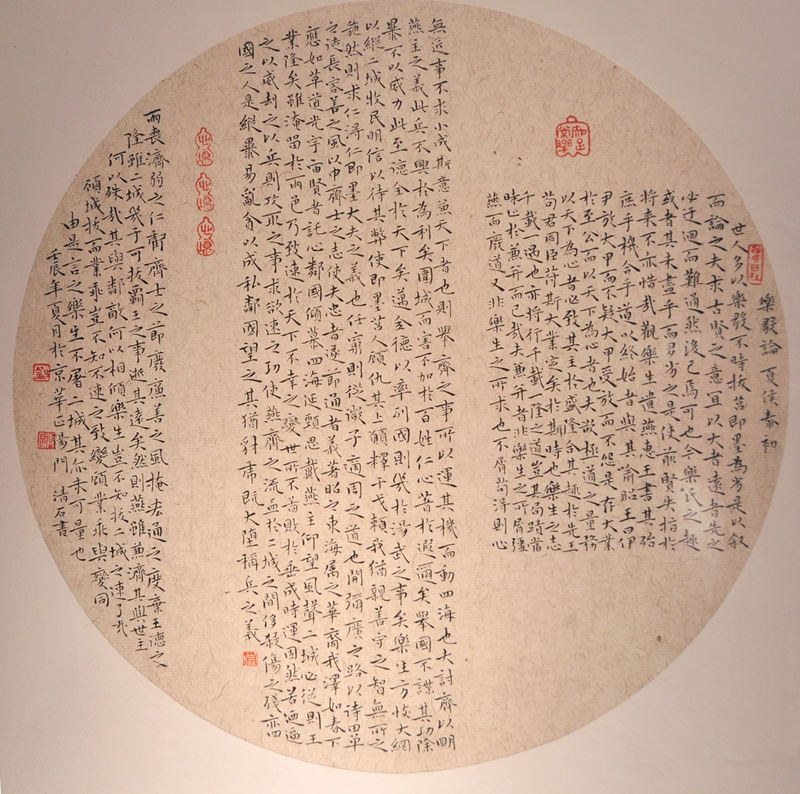 樂毅論 夏侯泰初
世人多以樂毅不時拔莒即墨為劣是以敘
而論之夫求古賢之意宜以大者遠者先之
必迂迴而難通然後已焉可也今樂氏之趣
或者其未盡乎而多劣之是使前賢失指於
將來不亦惜哉觀樂生遺燕惠王書其殆
庶乎機合乎道以終始者與其喻昭王曰伊
尹放大甲而不疑大甲受放而不怨是存大業
於至公而以天下為心者也夫欲極道之量務
以天下為心者必致其主於盛隆合其趣於先王
苟君同臣苻斯大業定矣於斯時也樂生之志
千載一遇也亦將行千載一隆之道豈其局蹟當
時止於兼并而已哉夫兼并者非樂生之所屑彊
燕而廢道又非樂生之所求也不屑苟淂則心
無近事不求小成斯意兼天下者也則舉齊之事所以運其機而動四海也夫討齊以明
燕主之義此兵不興於為利矣圍城而害不加於百姓仁心著於遐邇矣舉國不謀其功除
暴不以威力此至德全於天下矣邁全德以率列國則幾於湯武之事矣樂生方恢大綱
以縱二城牧民明信以待其弊使即墨莒人顧仇其上願釋干戈賴我猶親善守之智無所之
施然則求仁淂仁即墨大夫之義也任窮則從微子適周之道也開彌廣之路以待田單
之徒長容善之風以申齊士之志使夫忠者遂節通者義著昭之東海屬之華裔我澤如春下
應如草道光宇宙賢者託心鄰國傾慕四海延頸思戴燕主仰望風聲二城必從則王
業隆矣雖淹留於兩邑乃致速於天下不幸之變世所不啚敗於垂成時運固然若迺逼
之以威劫之以兵則攻取之事求欲速之功使燕齊之流血於二城之間侈殺傷之殘示四
國之人是縱暴易亂貪以成私鄰國望之其猶豺虎既大墮稱兵之義
而喪濟弱之仁虧齊士之節廢廉善之風掩宏通之度棄王德之
隆雖二城幾于可拔霸王之事逝其遠矣然則燕雖兼濟其與世主
何以殊哉其與鄰敵何以相傾樂生豈不知拔二城之速了哉
顧城拔而業乖豈不知不速之致變顧業乖與變同
由是言之樂生不屠二城其亦未可量也
壬辰年夏月於京華正陽門 清石書